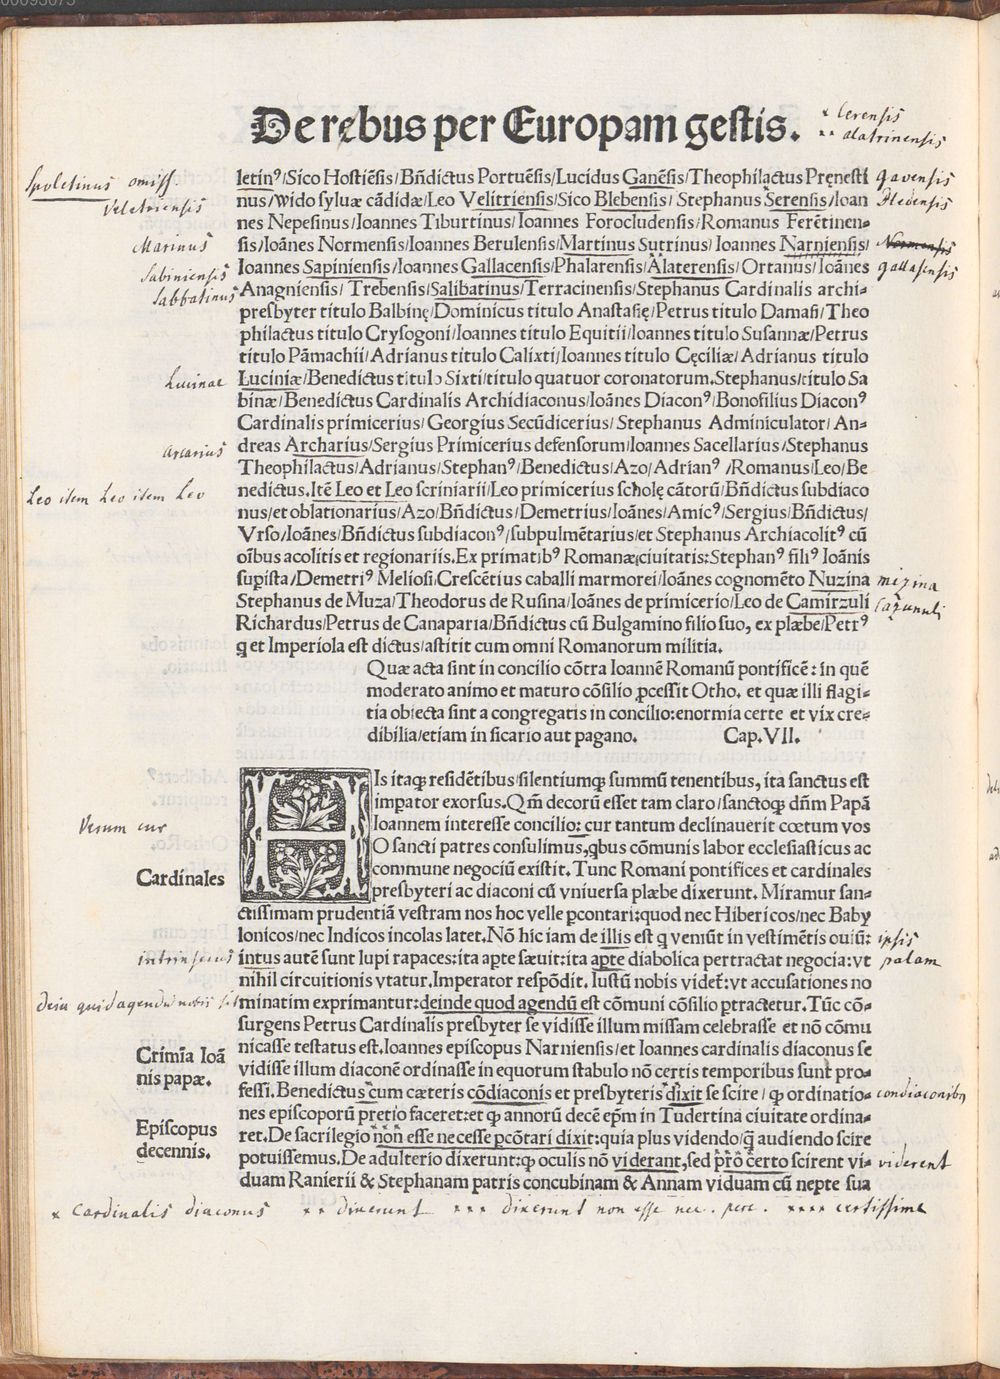 De rebus per Europam gestis.
* Cerensis
** alatrinensis
Spoletinus omiss.
Veletriensis
Marinus
Sabiniensis
Sabbatinus
Lucinae
arcarius
Leo item Leo item Leo
Verum cur
Cardinales
intrinsecus
dein quid agendū nobis sit
Crimīa Ioā
nis papæ.
Episcopus
decennis.
letinꝰ/Sico Hostiēsis/Bn̄dictus Portuēsis/Lucidus Ganēsis/Theophilactus Pręnesti
nus/Wido syluæ cādidæ/Leo Velitriensis/Sico Blebensis/Stephanus Serensis/Ioan
nes Nepesinus/Ioannes Tiburtinus/Ioannes Forocludensis/Romanus Ferētinen-
sis/Ioānes Normensis/Ioannes Berulensis/Martinus Sutrinus/Ioannes Narniensis/
Ioannes Sapiniensis/Ioannes Gallacensis/Phalarensis/Alaterensis/Ortanus/Ioānes
Anagniensis/Trebensis/Salibatinus/Terracinensis/Stephanus Cardinalis archi-
presbyter titulo Balbinę/Dominicus titulo Anastasię/Petrus titulo Damasi/Theo
philactus titulo Crysogoni/Ioannes titulo Equitii/Ioannes titulo Susannæ/Petrus
titulo Pāmachii/Adrianus titulo Calixti/Ioannes titulo Cęciliæ/Adrianus titulo
Luciniæ/Benedictus titulo Sixti/titulo quatuor coronatorum.Stephanus/titulo Sa
binæ/Benedictus Cardinalis Archidiaconus/Ioānes Diaconꝰ/Bonofilius Diaconꝰ
Cardinalis primicerius/Georgius Secūdicerius/Stephanus Adminiculator/An-
dreas Archarius/Sergius Primicerius defensorum/Ioannes Sacellarius/Stephanus
Theophilactus/Adrianus/Stephanꝰ/Benedictus/Azo/Adrianꝰ/Romanus/Leo/Be
nedictus.Itē Leo et Leo scriniarii/Leo primicerius scholę cātorū/Bn̄dictus subdiaco
nus/et oblationarius/Azo/Bn̄dictus/Demetrius/Ioānes/Amicꝰ/Sergius/Bn̄dictus/
Vrso/Ioānes/Bn̄dictus subdiaconꝰ/subpulmētarius/et Stephanus Archiacolitꝰ cū
oībus acolitis et regionariis.Ex primatibꝰ Romanæ ciuitatis:Stephanꝰ filiꝰ Ioānis
suꝑista/Demetriꝰ Meliosi/Crescētius caballi marmorei/Ioānes cognomēto Nuzina
Stephanus de Muza/Theodorus de Rufina/Ioānes de primicerio/Leo de Camirzuli
Richardus/Petrus de Canaparia/Bn̄dictus cū Bulgamino filio suo, ex plæbe/Petrꝰ
q̨ et Imperiola est dictus/astitit cum omni Romanorum militia.
Quæ acta sint in concilio cōtra Ioannē Romanū pontificē: in quē
moderato animo et maturo cōsilio ꝓcessit Otho. et quæ illi flagi-
tia obiecta sint a congregatis in concilio:enormia certe et vix cre-
dibilia/etiam in sicario aut pagano. Cap.VII.
HIs itaqꝫ residētibus/silentiumqꝫ summū tenentibus, ita sanctus est
imꝑator exorsus. Qm̄ decorū esset tam claro/sanctoqꝫ dn̄m Papā
Ioannem interesse concilio: cur tantum declinauerit cœtum vos
O sancti patres consulimus,qbus cōmunis labor ecclesiasticus ac
commune negociū existit. Tunc Romani pontifices et cardinales
presbyteri ac diaconi cū vniuersa plæbe dixerunt. Miramur san-
ctissimam prudentiā vestram nos hoc velle ꝑcontari:quod nec Hibericos/nec Baby
lonicos/nec Indicos incolas latet.Nō hic iam de illis est q̨ veniūt in vestimētis ouiū:
intus autē sunt lupi rapaces:ita aꝑte sæuit:ita aꝑte diabolica pertractat negocia:vt
nihil circuitionis vtatur.Imperator respōdit. Iustū nobis videt̄:vt accusationes no
minatim exprimantur:deinde quod agendū est cōmuni cōsilio ꝑtractetur.Tūc cō-
surgens Petrus Cardinalis presbyter se vidisse illum missam celebrasse et nō cōmu
nicasse testatus est.Ioannes episcopus Narniensis/et Ioannes cardinalis diaconus se
vidisse illum diaconē ordinasse in equorum stabulo nō certis temporibus sunt pro-
fessi.Benedictus cum cæteris cōdiaconis et presbyteris dixit se scire/ꝙ ordinatio-
nes episcoporū pretio faceret:et ꝙ annorū decē ep̄m in Tudertina ciuitate ordina-
ret.De sacrilegio non esse necesse ꝑcōtari dixit:quia plus videndo/q̄ audiendo scire
potuissemus.De adulterio dixerunt:ꝙ oculis nō viderant,sed ꝓ certo scirent vi-
duam Ranierii & Stephanam patris concubinam & Annam viduam cū nepte sua
gavensis
Bledensis
Normensis
gallasensis
mizina
Cazunuli
ipsis
palam
condiaconibꝫ
viderent
* Cardinalis diaconus ** dixerunt *** dixerunt non esse nec. perc. **** certissime